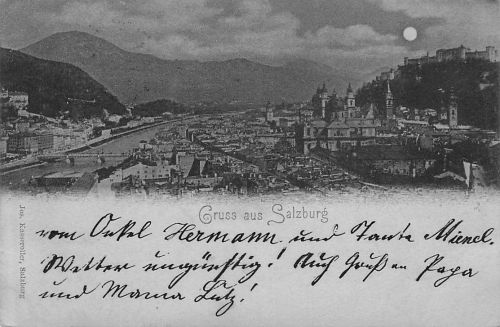 Gruss aus Salzburg
vom Onkel Hermann und Tante Mienel.
Wetter ungünstig! Auch Grüß an Papa
und Mama Lutz!
Jos. Kaserer, Salzburg